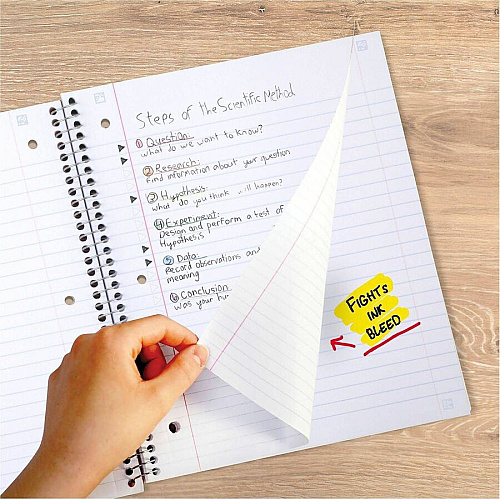 Steps of the Scientific Method
① Question:
what do we want to know?
② Research:
find information about your question
③ Hypothesis:
what do you think will happen?
④ Experiment:
Design and perform a test of
Hypothesis
⑤ Data:
Record observations and
meaning
⑥ Conclusion
was your
FIGHTS
INK
BLEED